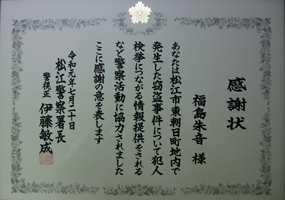 感謝状
福島朱音 様
あなたは松江市東朝日町地内で
発生した窃盗事件について犯人
検挙につながる情報提供をされる
など警察活動に協力されました
ここに感謝の意を表します
令和元年七月二十日
松江警察署長
警視正 伊藤敏成